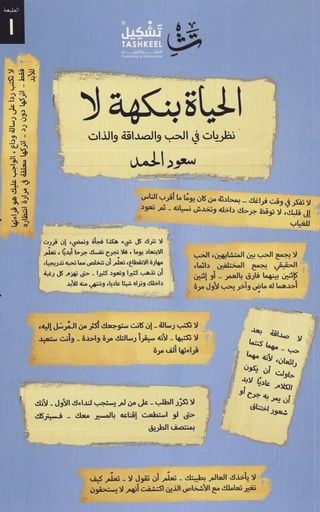 الطبعة
١
تشكيل
TASHKEEL
الحياة بنكهة لا
نظريات في الحب والصداقة والذات
سعود الحمد
لا تكتب ردا على رسالة وداع ، الواجب عليك هو قراءتها
فقط - اتركها دون رد - اتركها معلقة في مرارة انتظاره
للأبد
لا تفكر في وقت فراغك .. بمحادثة من كان يومًا ما أقرب الناس
إلى قلبك، لا توقظ جرحك داخله وتخدش نسيانه .. ثم تعود
للغياب
لا تترك كل شيء هكذا فجأة وتمضي، إن قررت
الابتعاد يوما ، فلا تجرح نفسك جرحا أبديًا ، تعلّم
مهارة الانقطاع، تعلّم أن تتخلص مما تحبه تدريجيا،
أن تذهب كثيرا وتعود كثيرا .. حتى تهزم كل رغبة
داخلك وتراه شيئا عاديا، وتنتهي منه للأبد
لا يجمع الحب بين المتشابهين، الحب
الحقيقي يجمع المختلفين دائما،
كإثنين بينهما فارق بالعمر .. أو إثنين
أحدهما له ماضٍ وآخر يحب لأول مرة
لا صداقة بعد
حب - مهما كنتما
رائعان، لأنه مهما
حاولت أن يكون
الكلام عاديًا لابد
أن يمر به جرح أو
شعور اختناق
لا تكتب رسالة .. إن كانت ستوجعك أكثر من المُرسَل إليه،
لا تكتبها .. لأنه سيقرأ رسالتك مرة واحدة .. وأنت ستعيد
قراءتها ألف مرة
لا تكرّر الطلب - على من لم يستجب لنداءك الأول .. لأنك
حتى لو استطعت إقناعه بالمسير معك .. فسيتركك
بمنتصف الطريق
لا يأخذك العالم بطيبتك .. تعلّم أن تقول لا .. تعلّم كيف
تغير تعاملك مع الأشخاص الذين اكتشفت أنهم لا يستحقون